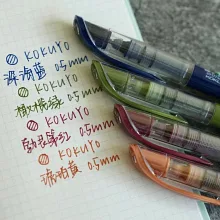 KOKUYO
深海蓝 0.5mm
KOKUYO
橄榄绿 0.5mm
KOKUYO
0.5mm
KOKUYO
琥珀黄 0.5mm